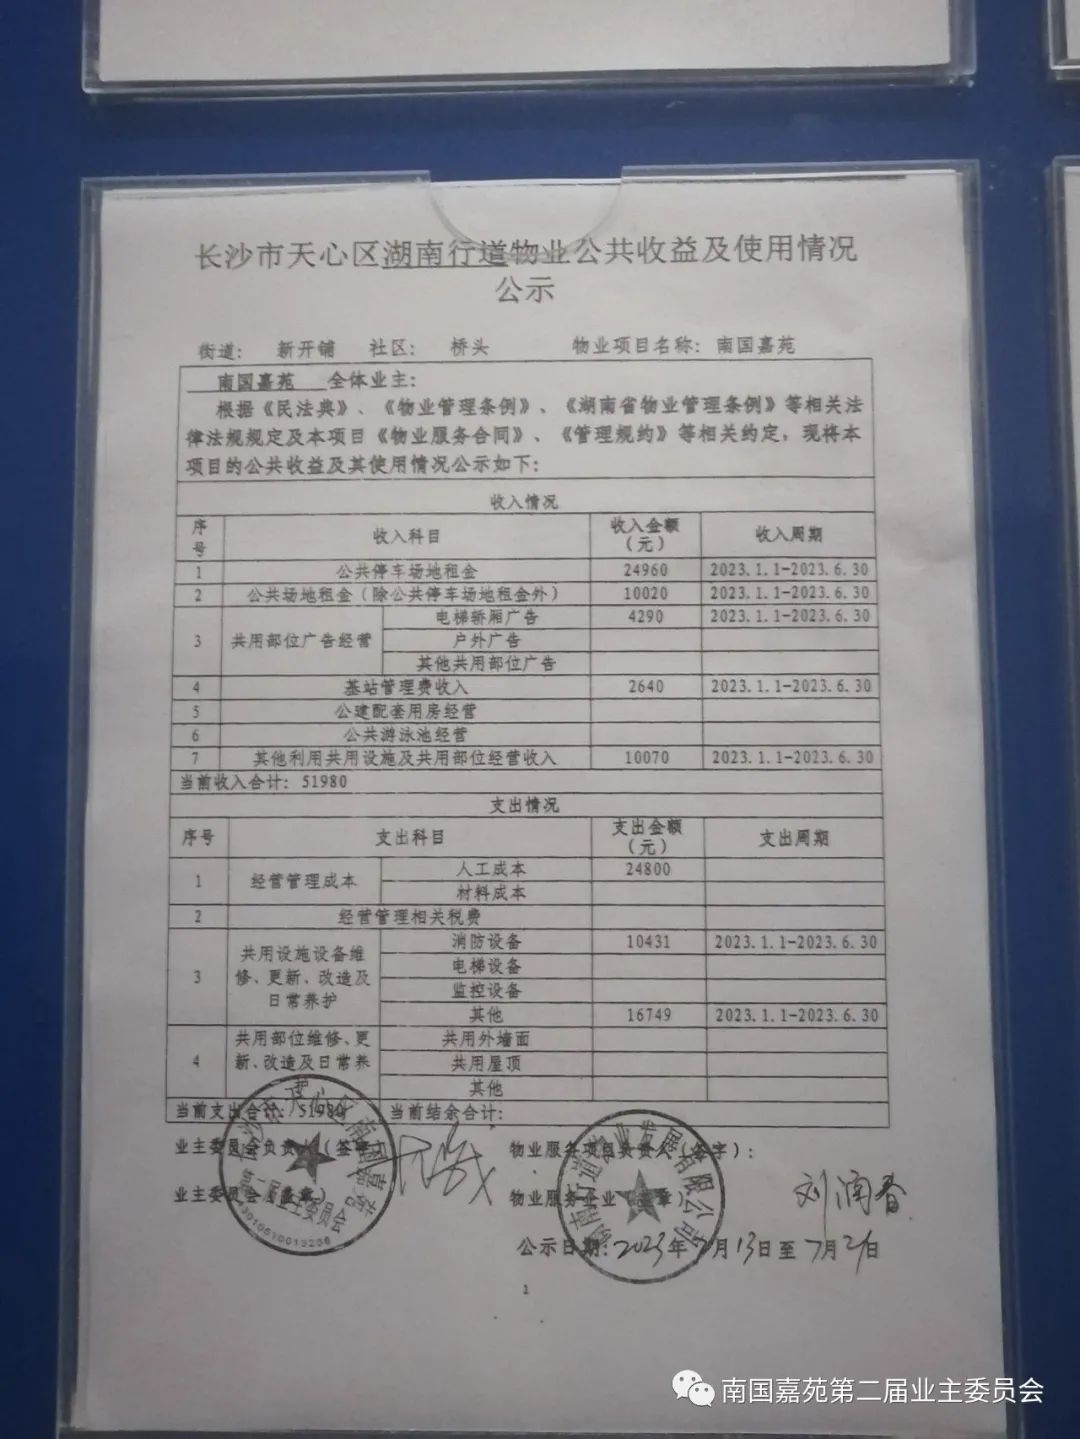 长沙市天心区湖南行道物业公共收益及使用情况
公示
街道： 新开铺 社区： 桥头 物业项目名称：南国嘉苑
南国嘉苑 全体业主：
根据《民法典》、《物业管理条例》、《湖南省物业管理条例》等相关法
律法规规定及本项目《物业服务合同》、《管理规约》等相关约定，现将本
项目的公共收益及其使用情况公示如下：
收入情况
序号 收入科目 收入金额（元） 收入周期
1 公共停车场地租金 24960 2023.1.1-2023.6.30
2 公共场地租金（除公共停车场地租金外） 10020 2023.1.1-2023.6.30
3 共用部位广告经营 电梯轿厢广告 4290 2023.1.1-2023.6.30
户外广告
其他共用部位广告
4 基站管理费收入 2640 2023.1.1-2023.6.30
5 公建配套用房经营
6 公共游泳池经营
7 其他利用共用设施及共用部位经营收入 10070 2023.1.1-2023.6.30
当前收入合计：51980
支出情况
序号 支出科目 支出金额（元） 支出周期
1 经营管理成本 人工成本 24800
材料成本
2 经营管理相关税费
3 共用设施设备维修、更新、改造及日常养护 消防设备 10431 2023.1.1-2023.6.30
电梯设备
监控设备
其他 16749 2023.1.1-2023.6.30
4 共用部位维修、更新、改造及日常养护 共用外墙面
共用屋顶
其他
当前支出合计：51980 当前结余合计：
业主委员会负责人（签字） 物业服务项目负责人（签字）：
业主委员会（盖章） 物业服务企业（盖章） 刘润香
公示日期：2023年7月13日至7月21日
1
南国嘉苑第二届业主委员会